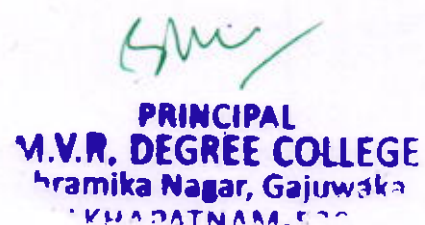 PRINCIPAL
M.V.R. DEGREE COLLEGE
hramika Nagar, Gajuwaka
KHAPATNAM-530